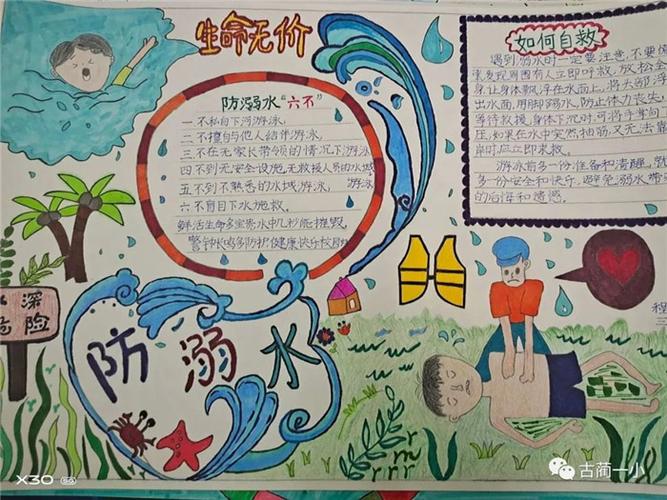 生命无价
防溺水“六不”
一 不私自下河游泳,
二 不擅自与他人结伴游泳,
三 不在无家长带领的情况下游泳
四 不到无安全设施、无救援人员的水域
五 不到不熟悉的水域游泳, 游泳
六 不盲目下水施救.
鲜活生命多宝贵水中几秒能摧毁,
警钟长鸣多防护健康快乐校园
如何自救
遇到溺水时一定要注意,不要
来发现周围有人立即呼救,放松全
身让身体飘浮在水面上,将头部浮
出水面,用脚踢水,防止体力丧失,
等待救援,身体下沉时,可将手掌向
压.如果在水中突然抽筋,又无法靠
岸时,应立即求救.
游泳前多一份准备和清醒,就
多一份安全和快乐,避免溺水带
的后悔和遗憾.
水深
危险
防溺水
程
三
X30 5G
古蔺一小